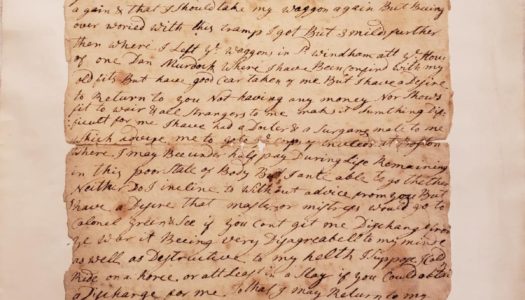 again & that I Should take my waggon again But Being
over woried with this tramp I got But 3 miles further
than where I Left ye waggons in St windham att ye Hous
of one Dan Murdock where I have Been Confind with my
old fits But have good Car taken of me But I have a Desire
to Return to you Not having any money Nor Shows
fit to wair & all Strangers to me maks it Sumthing Dif
ficult for me I have had a & a Surgang mate to me
which advise me to to ye Company at Boston
where I may Bee under half pay During Life Remaining
in this poor State of Body But I ant able to go thither
Neither Do I incline to without advice from you But
I have a Desire that master or mistress would go to
Colonel Green & See if you Cont git me Discharg from
ye war it Beeing very Disagreabell to my mind
as well as Destructive to my helth I Suppose I Could
Ride on a horse or att Least in a Slay if you Could obtain
a Discharge for me that I may Return to my